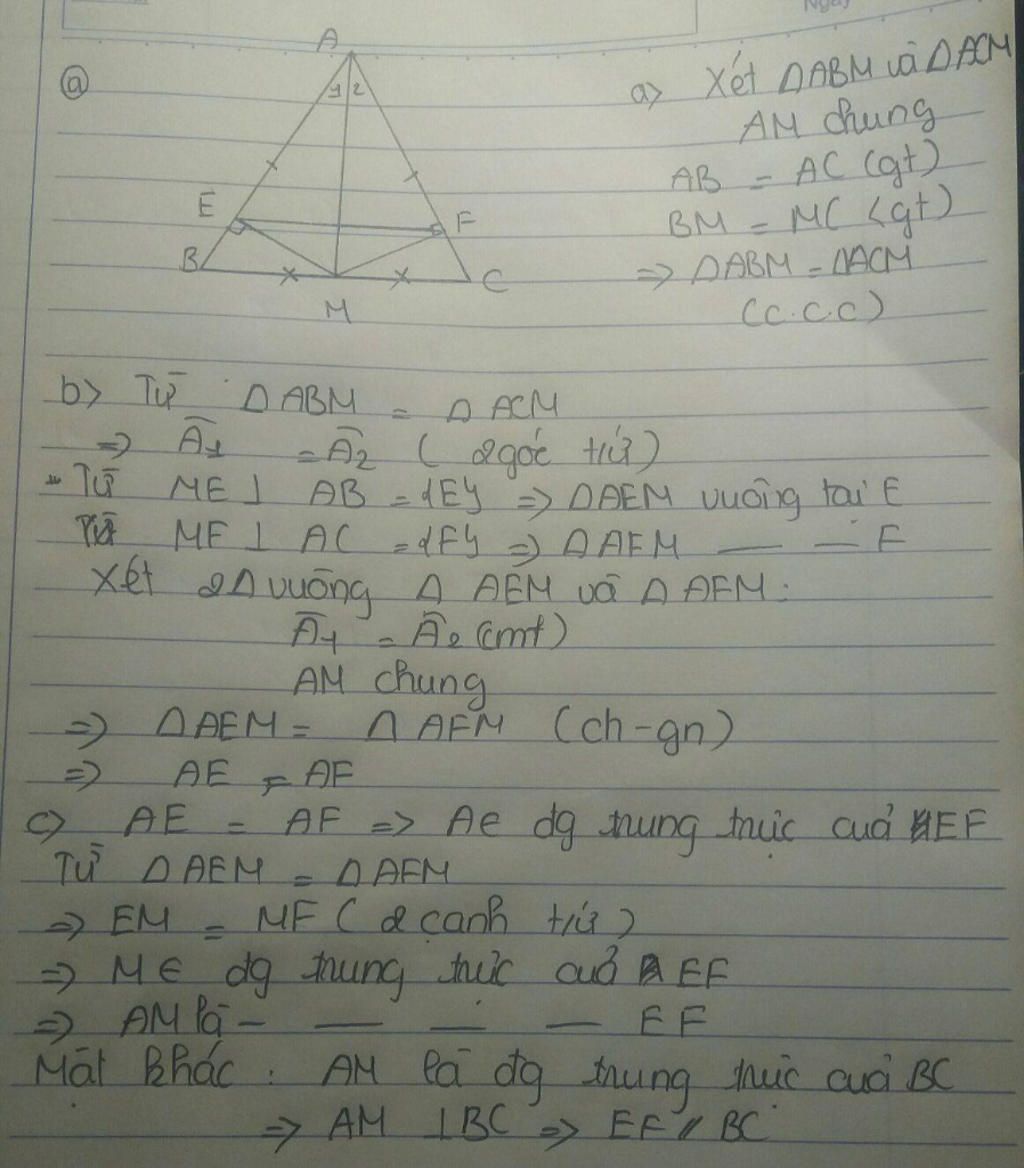 Ngày
ⓐ
A
1 2
E
F
B
C
M
a> Xét ΔABM và ΔACM
AM chung
AB = AC (gt)
BM = MC (gt)
=> ΔABM = ΔACM
(c.c.c)
b> Từ ΔABM = ΔACM
=> Â1 = Â2 (2 góc t/ứ)
Từ ME ⊥ AB = {E} => ΔAEM vuông tại E
Từ MF ⊥ AC = {F} => ΔAFM — — F
Xét 2Δ vuông Δ AEM và Δ AFM:
Â1 = Â2 (cmt)
AM chung
=> ΔAEM = Δ AFM (ch-gn)
=> AE = AF
c> AE = AF => A∈ đg trung trực của EF
Từ ΔAEM = ΔAFM
=> EM = MF (2 cạnh t/ứ)
=> M ∈ đg trung trực của EF
=> AM là — — — — EF
Mặt khác: AM là đg trung trực của BC
=> AM ⊥ BC => EF // BC